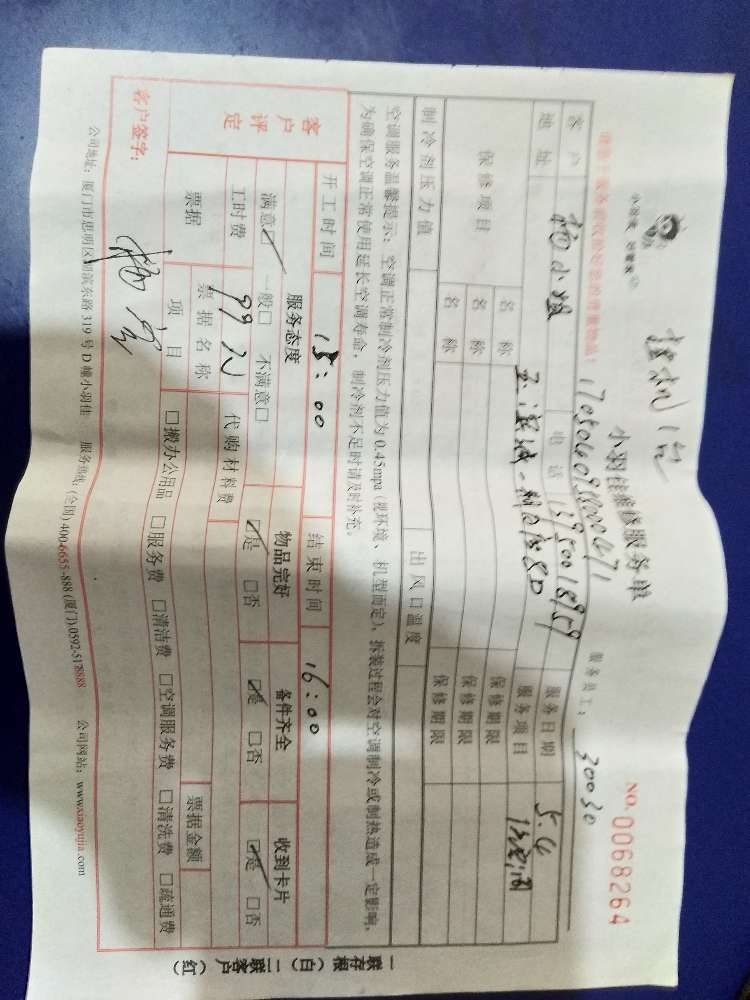 小羽佳 好管家
小羽佳维修服务单
NO. 0068264
17050609000471
服务员工: 30030
客户 杨小姐 电话 13950018959 服务日期 5.6
地址 服务项目
保修项目 名称 保修期限
名称 保修期限
名称 保修期限
制冷剂压力值 出风口温度
空调服务温馨提示:空调正常制冷剂压力值为0.45mpa(视环境、机型而定),拆装过程会对空调制冷或制热造成一定影响,
为确保空调正常使用延长空调寿命,制冷剂不足时请及时补充。
开工时间 15:00 结束时间 16:00
客户评定 服务态度 物品完好 备件齐全 收到卡片
满意☑ 一般□ 不满意□ ☑是 □否 ☑是 □否 ☑是 □否
工时费 99元 代购材料费
票据 票据名称 票据金额
项目 □搬办公用品 □服务费 □清洁费 □空调服务费 □清洗费 □疏通费
客户签字:
公司地址:厦门市思明区湖滨东路319号D幢小羽佳 服务热线:(全国)400-6655-888 (厦门)0592-5178888 公司网站:www.xiaoyujia.com
一联存根(白)二联客户(红)